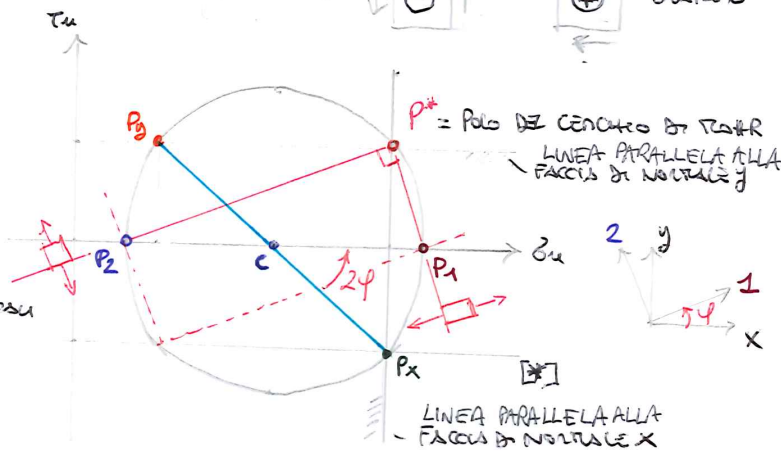 τu
Py
P*
= POLO DEL CERCHIO DI MOHR
LINEA PARALLELA ALLA
FACCIA DI NORMALE y
P2
C
2φ
P1
σu
2
y
1
φ
x
Px
[*]
LINEA PARALLELA ALLA
- FACCIA DI NORMALE X